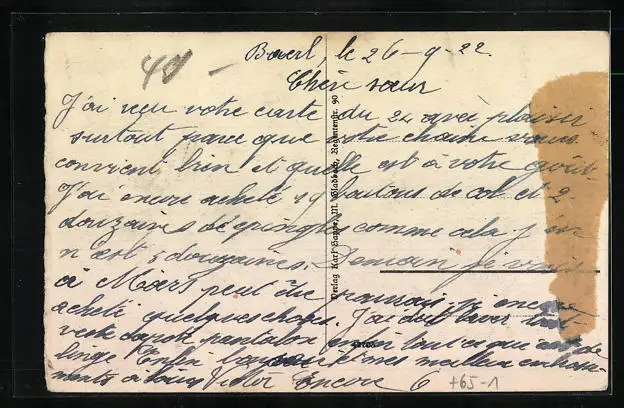 40 -
Baerl, le 26-9-22.
Chère sœur
J'ai reçu votre carte du 24 avec plaisir
surtout parce que votre chaine vous
convient bien et qu'elle est à votre goût.
J'ai encore acheté 19 boutons de col et 2
douzaines d'épingles comme cela j'en
n est 5 douzaines. Demain je vais
à Mörs peut être
acheté quelques chose. J'ai dû laver tout
veste capote pantalon enfin tout ce que est de
linge Enfin et mes meilleux embrasse-
ments à tous Victor Encore 6
+65-1
Verlag Karl M. Gladbach, Regentenstr. 90